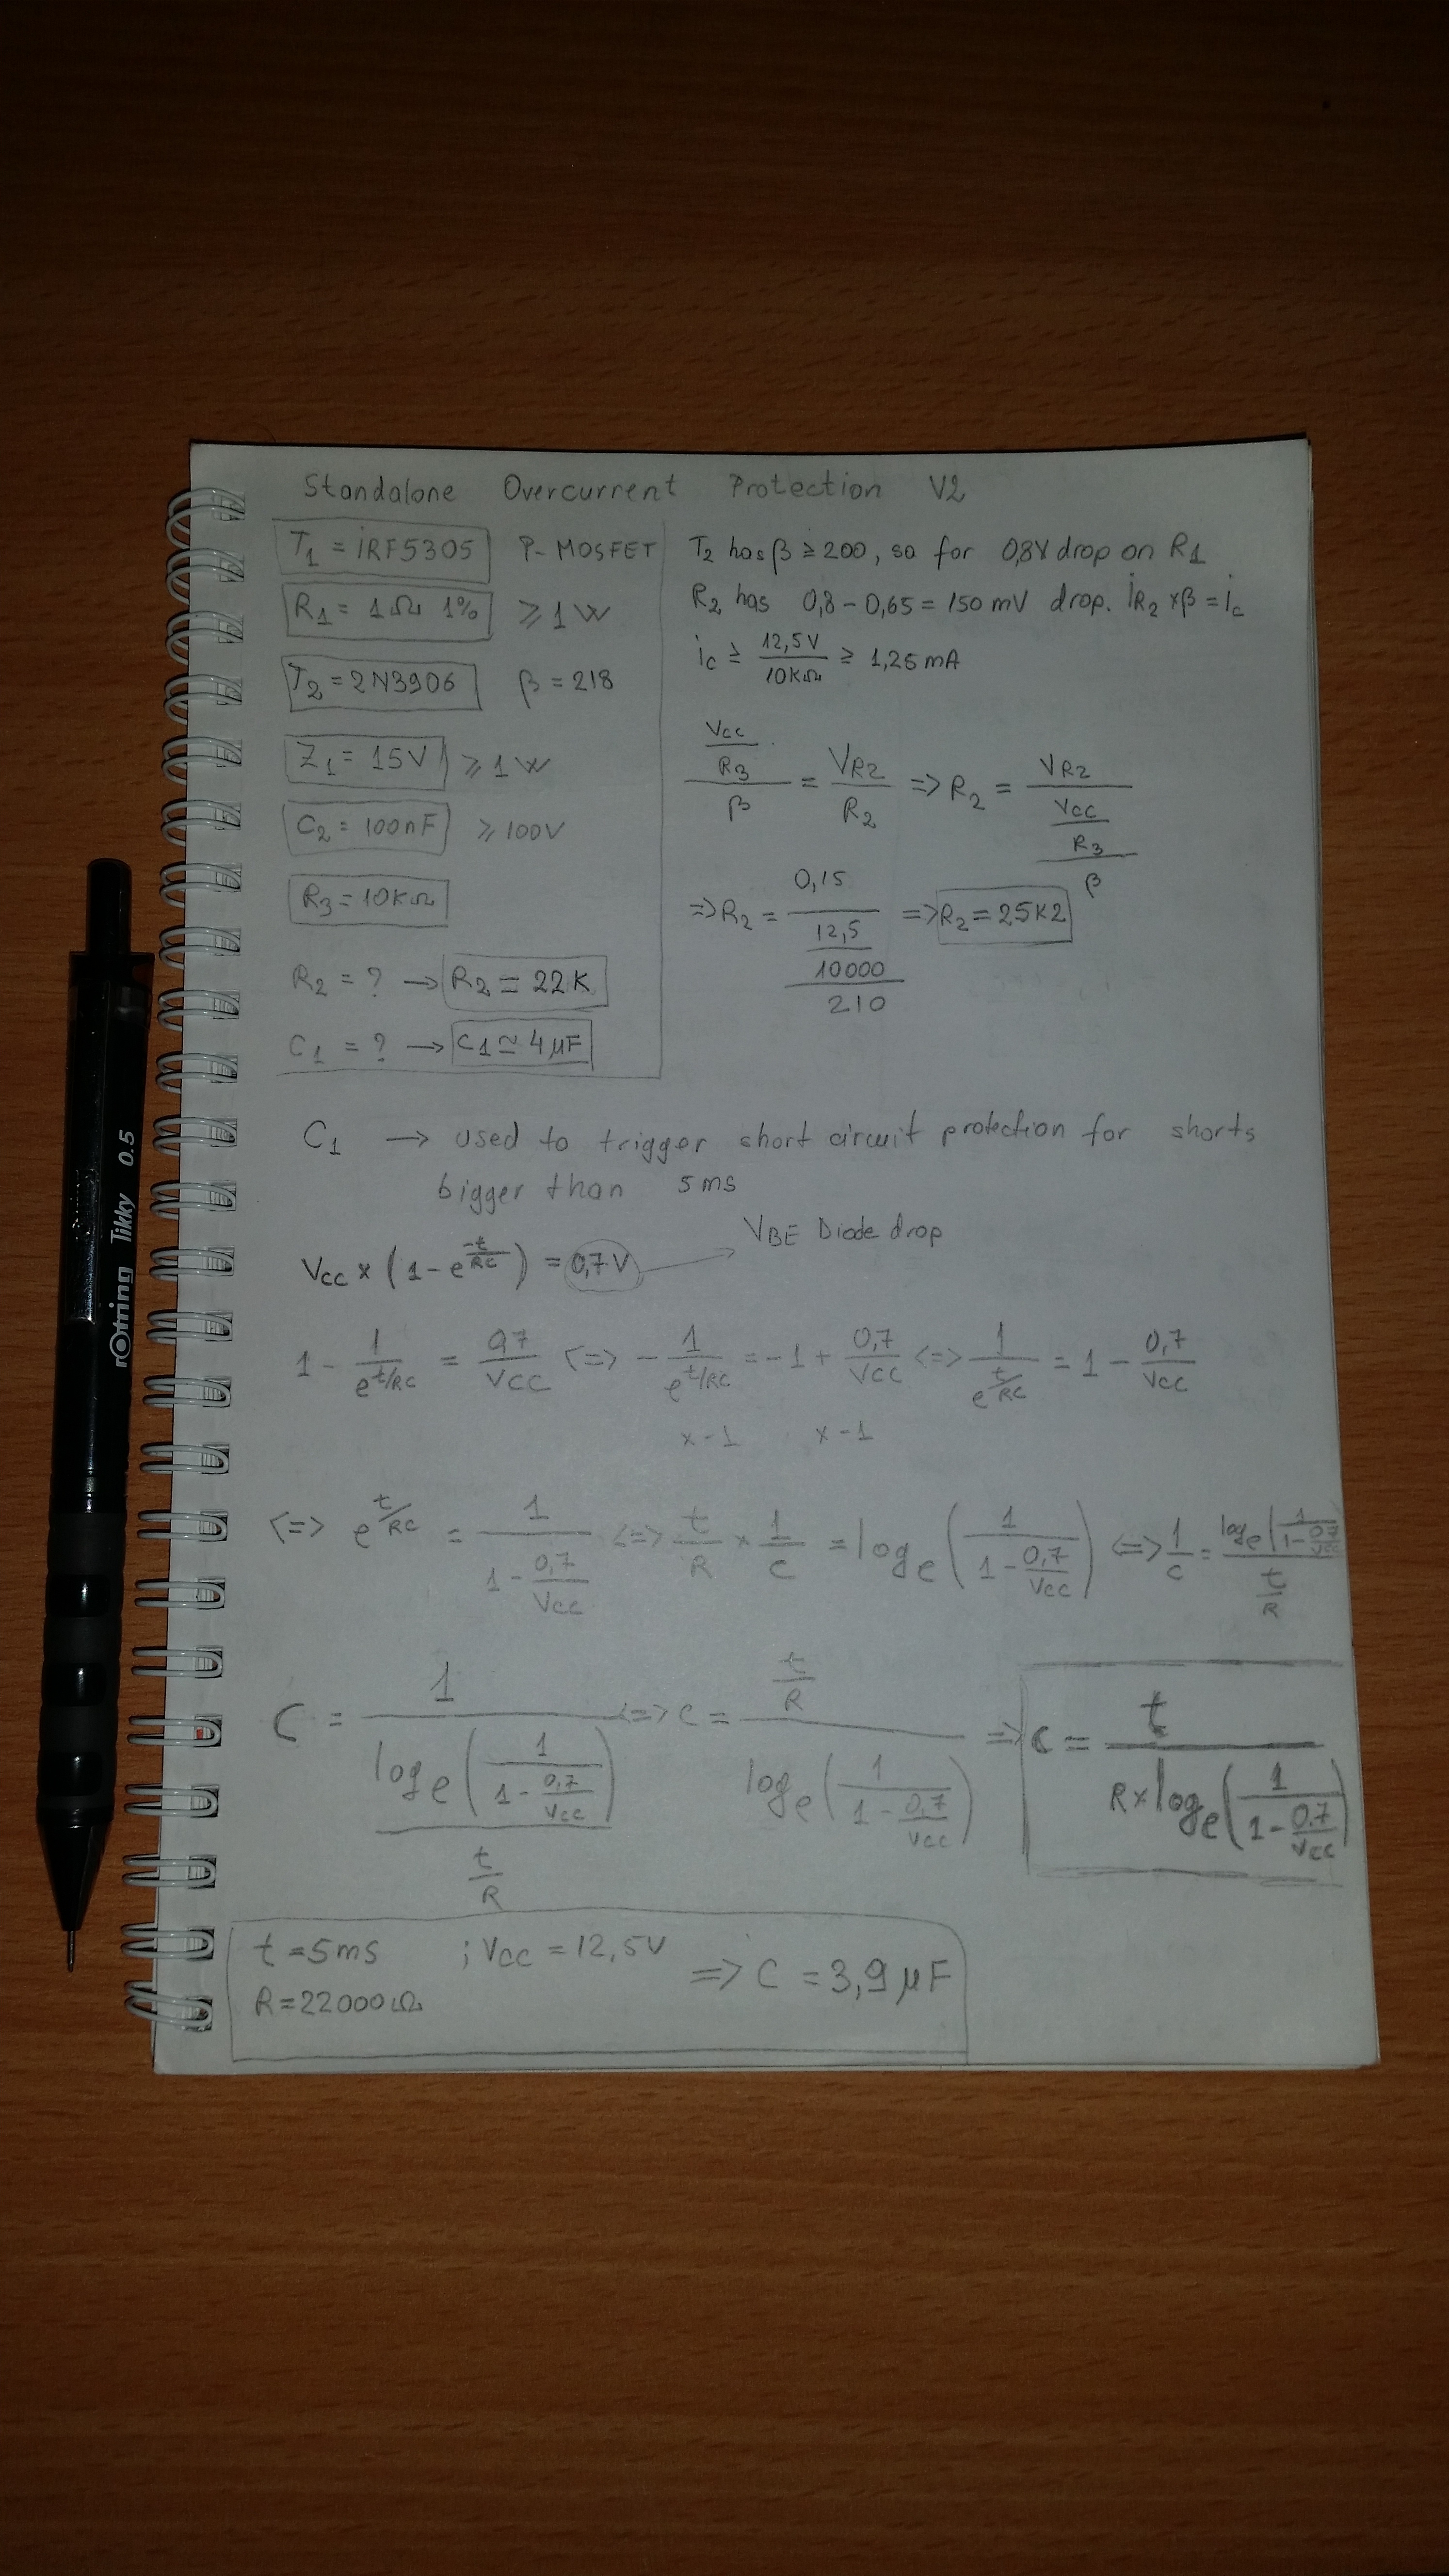 Standalone Overcurrent Protection V2
T1 = iRF5305 P-MOSFET
R1 = 1Ω 1% ≥ 1W
T2 = 2N3906 β = 218
Z1 = 15V ≥ 1W
C2 = 100nF ≥ 100V
R3 = 10KΩ
R2 = ? → R2 = 22K
C1 = ? → C1 ≃ 4µF
T2 has β ≥ 200, so for 0,8V drop on R1
R2 has 0,8 - 0,65 = 150 mV drop. iR2 × β = ic
ic ≥ 12,5V / 10KΩ ≥ 1,25mA
((Vcc / R3) / β) = VR2 / R2 => R2 = VR2 / ((Vcc / R3) / β)
=> R2 = 0,15 / ((12,5 / 10000) / 210) => R2 = 25K2
C1 → used to trigger short circuit protection for shorts
bigger than 5ms
VBE Diode drop
Vcc × (1 - e^(-t/RC)) = 0,7V
1 - 1/e^(t/RC) = 0,7/VCC <=> - 1/e^(t/RC) = -1 + 0,7/VCC <=> 1/e^(t/RC) = 1 - 0,7/VCC
×-1 ×-1
<=> e^(t/RC) = 1/(1 - 0,7/VCC) <=> t/R × 1/C = loge(1/(1 - 0,7/VCC)) <=> 1/C = loge(1/(1 - 0,7/VCC)) / (t/R)
C = 1 / (loge(1/(1 - 0,7/VCC)) / (t/R)) <=> C = (t/R) / loge(1/(1 - 0,7/VCC)) => C = t / (R × loge(1/(1 - 0,7/VCC)))
t = 5ms ; VCC = 12,5V
R = 22000Ω => C = 3,9 µF
rOtring Tikky 0.5